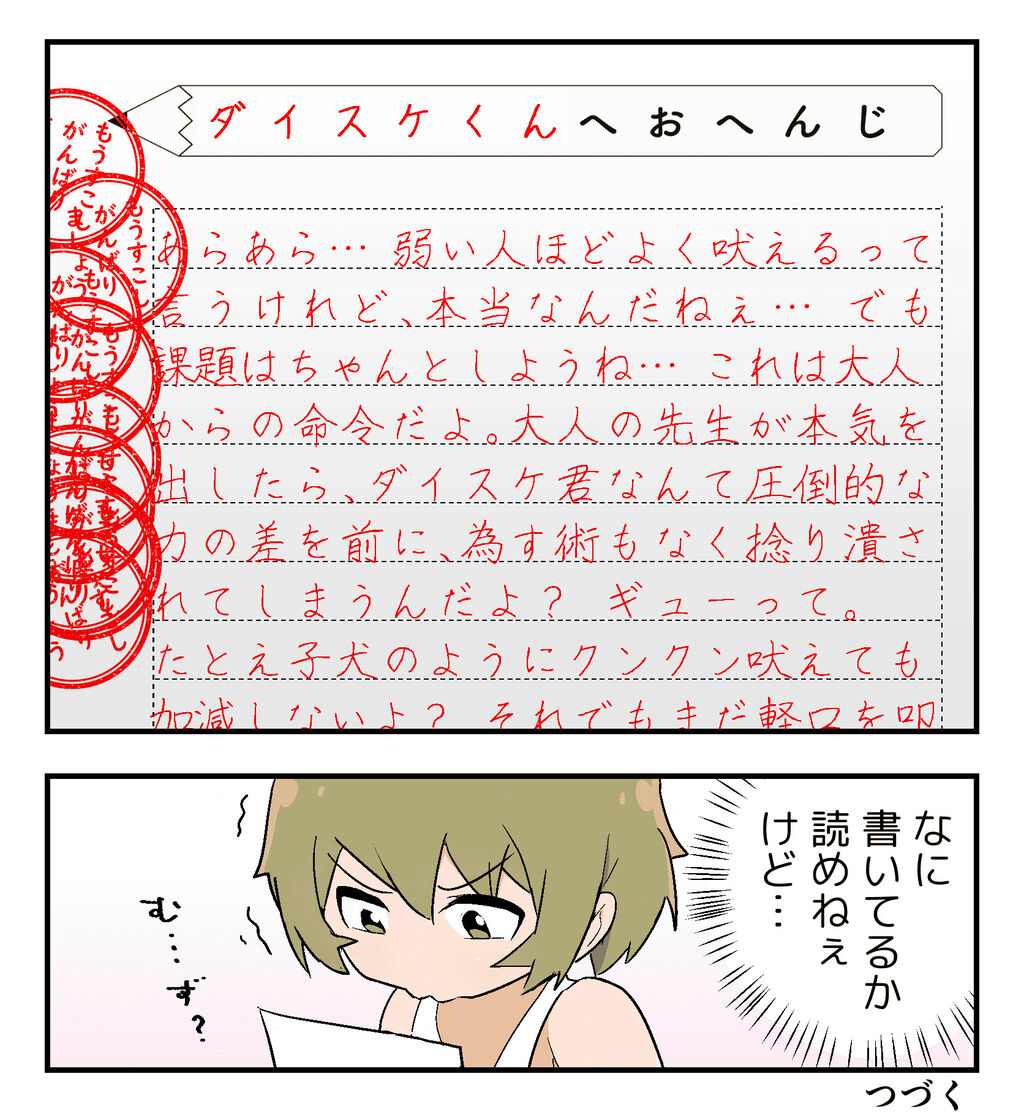 ダイスケくんへおへんじ
もうすこし
がんばりましょう
もうすこし
がんばり
あらあら… 弱い人ほどよく吠えるって
言うけれど、本当なんだねぇ… でも
課題はちゃんとしようね… これは大人
からの命令だよ。大人の先生が本気を
出したら、ダイスケ君なんて圧倒的な
力の差を前に、為す術もなく捻り潰さ
れてしまうんだよ？ ギューって。
たとえ子犬のようにクンクン吠えても
加減しないよ？ それでもまだ軽口を叩
なに
書いてるか
読めねぇ
けど…
む…
ず？
つづく